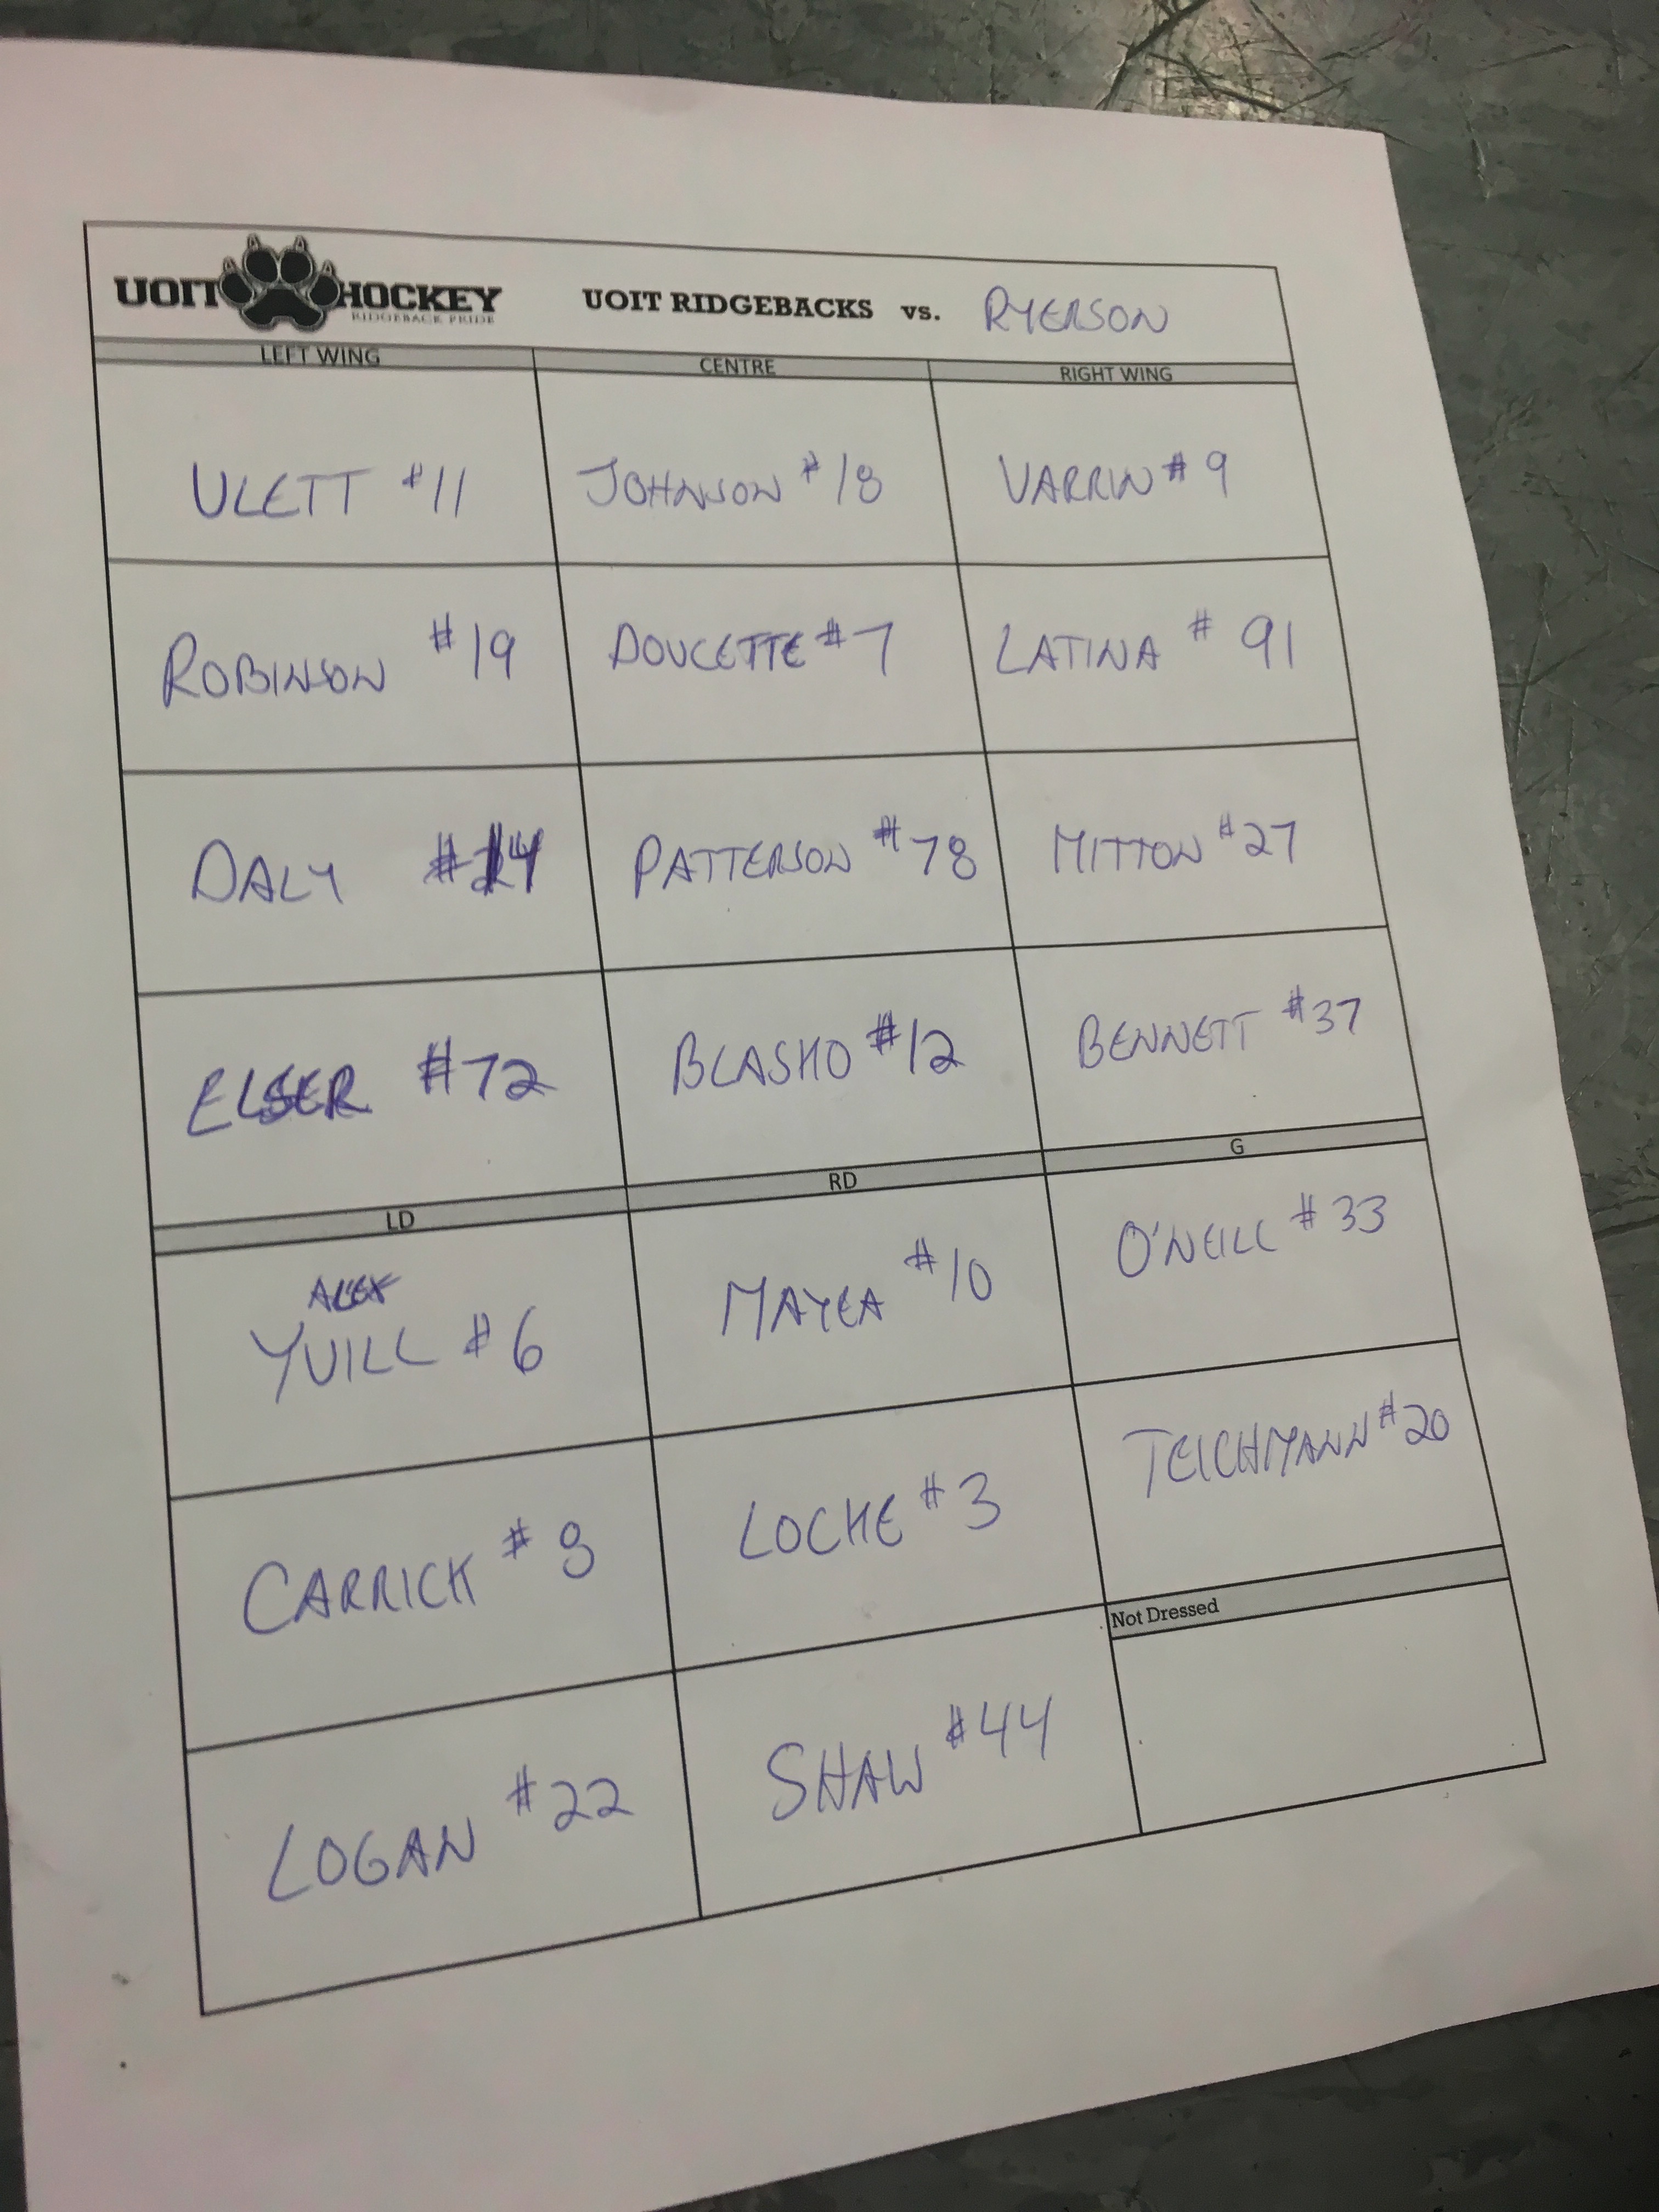 UOIT HOCKEY
RIDGEBACK PRIDE
UOIT RIDGEBACKS vs. RYERSON
LEFT WING CENTRE RIGHT WING
ULETT #11 JOHNSON #18 VARRIN #9
ROBINSON #19 DOUCETTE #7 LATINA #91
DALY #14 PATTERSON #78 MITTON #27
ELSER #72 BLASKO #12 BENNETT #37
LD RD G
ALEX
YUILL #6 MAYEA #10 O'NEILL #33
CARRICK #8 LOCKE #3 TEICHMANN #20
Not Dressed
LOGAN #22 SHAW #44